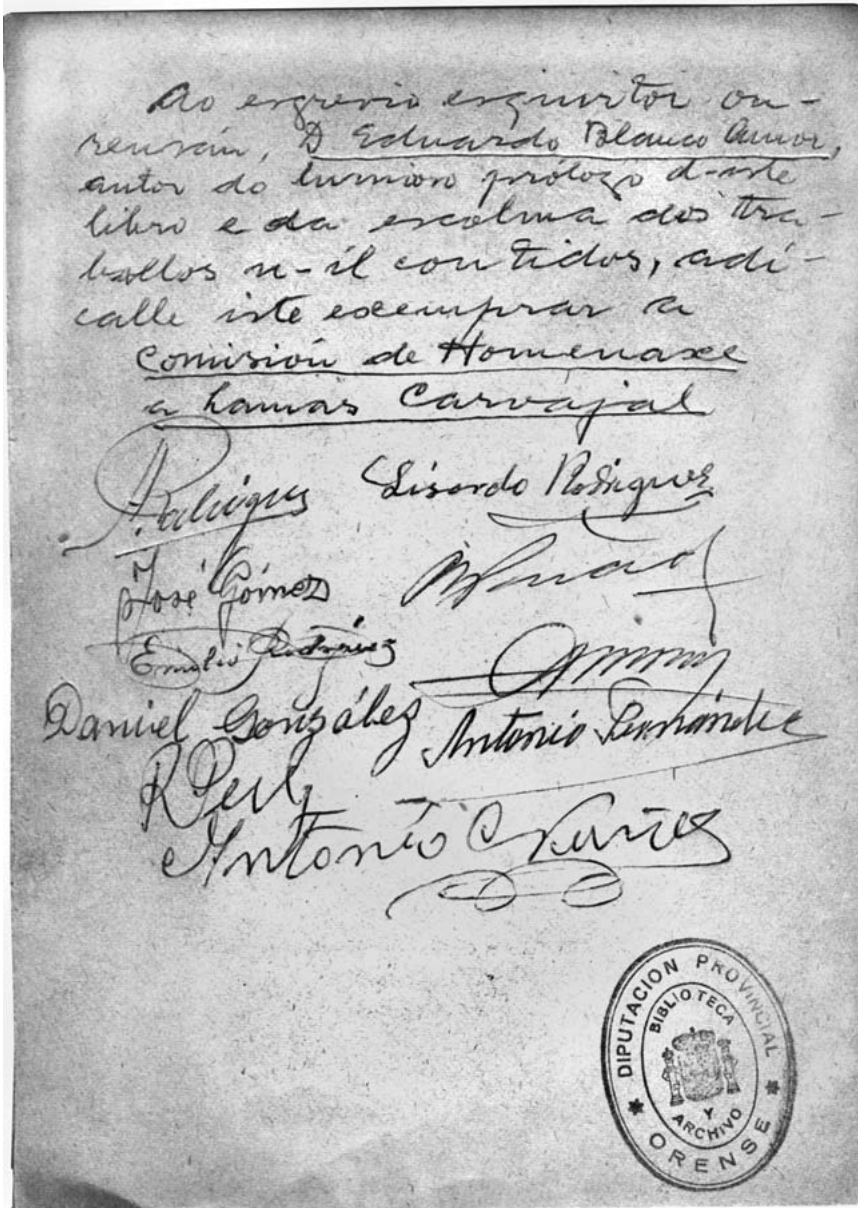 Ao egrexio esquirtor ou-
rensán, D Eduardo Blanco Amor,
autor do lumioso prólogo d-iste
libro e da escolma dos tra-
ballos n-il contidos, adi-
calle iste exemprar a
Comisión de Homenaxe
a Lamas Carvajal
Lisardo Rodriguez
José Gómez
Emilio Rodríguez
Daniel González
Antonio Fernández
Antonio
DIPUTACION PROVINCIAL
BIBLIOTECA
Y
ARCHIVO
ORENSE